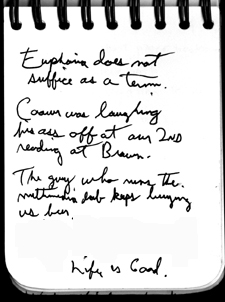 Euphoria does not
suffice as a term.
Coover was laughing
his ass off at our 2ND
reading at Brown.
The guy who runs the
multimedia lab keeps buying
us beer.
Life is Good.